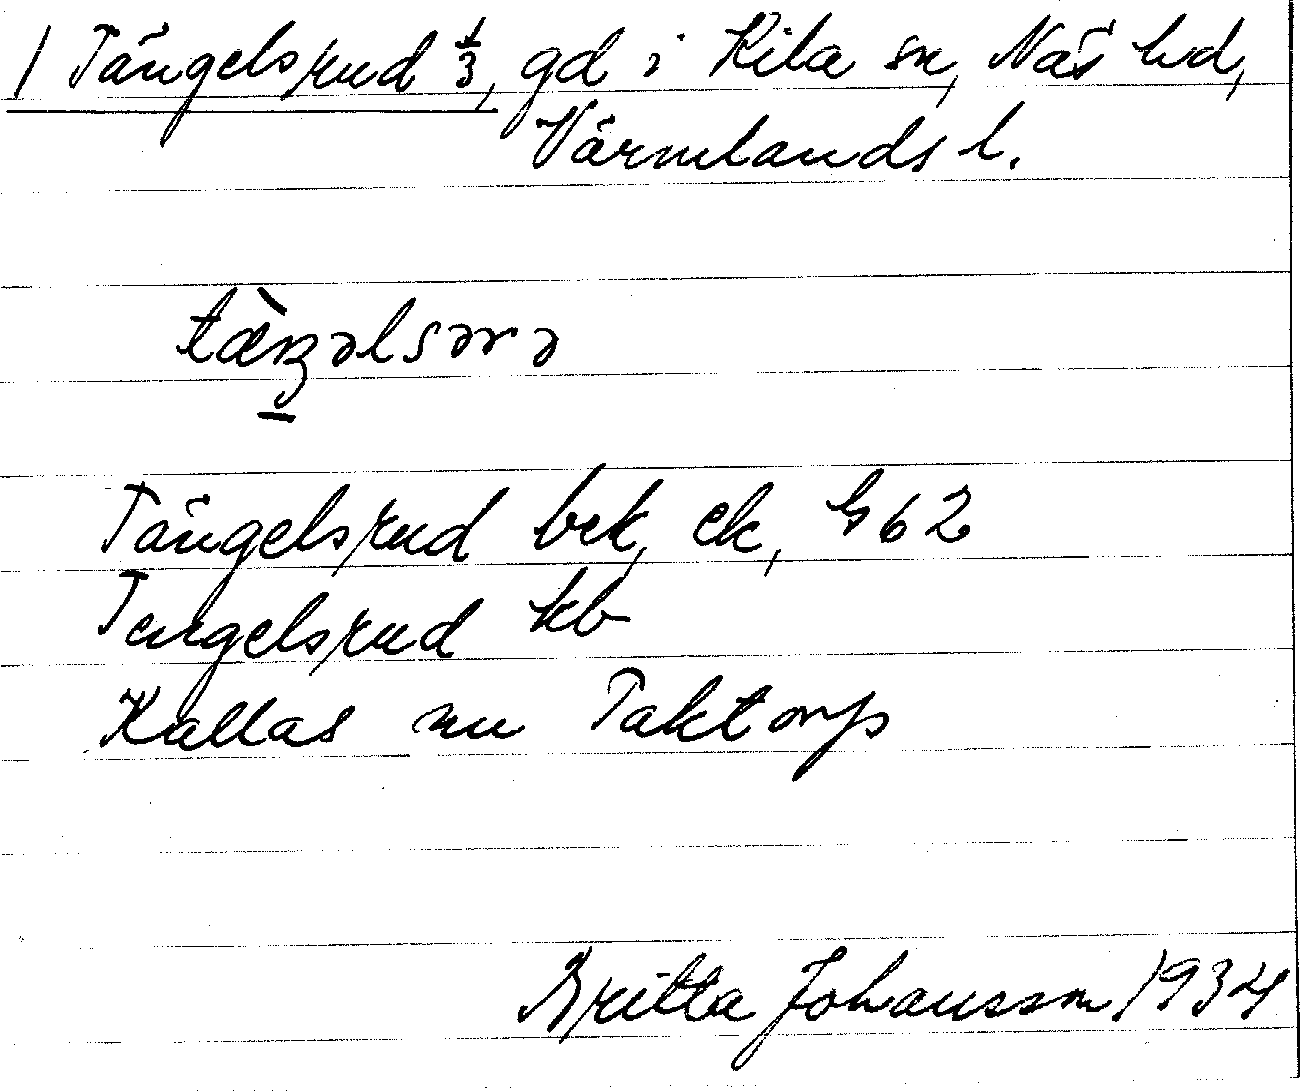 1 Tängelsrud 1/3, gd i Kila sn, Näs hd,
Värmlands l.
tæ̀ŋəlsərə
Tängelsrud bek, ek, G62
Tengelsrud kb
Kallas nu Taktorp
Britta Johansson 1934